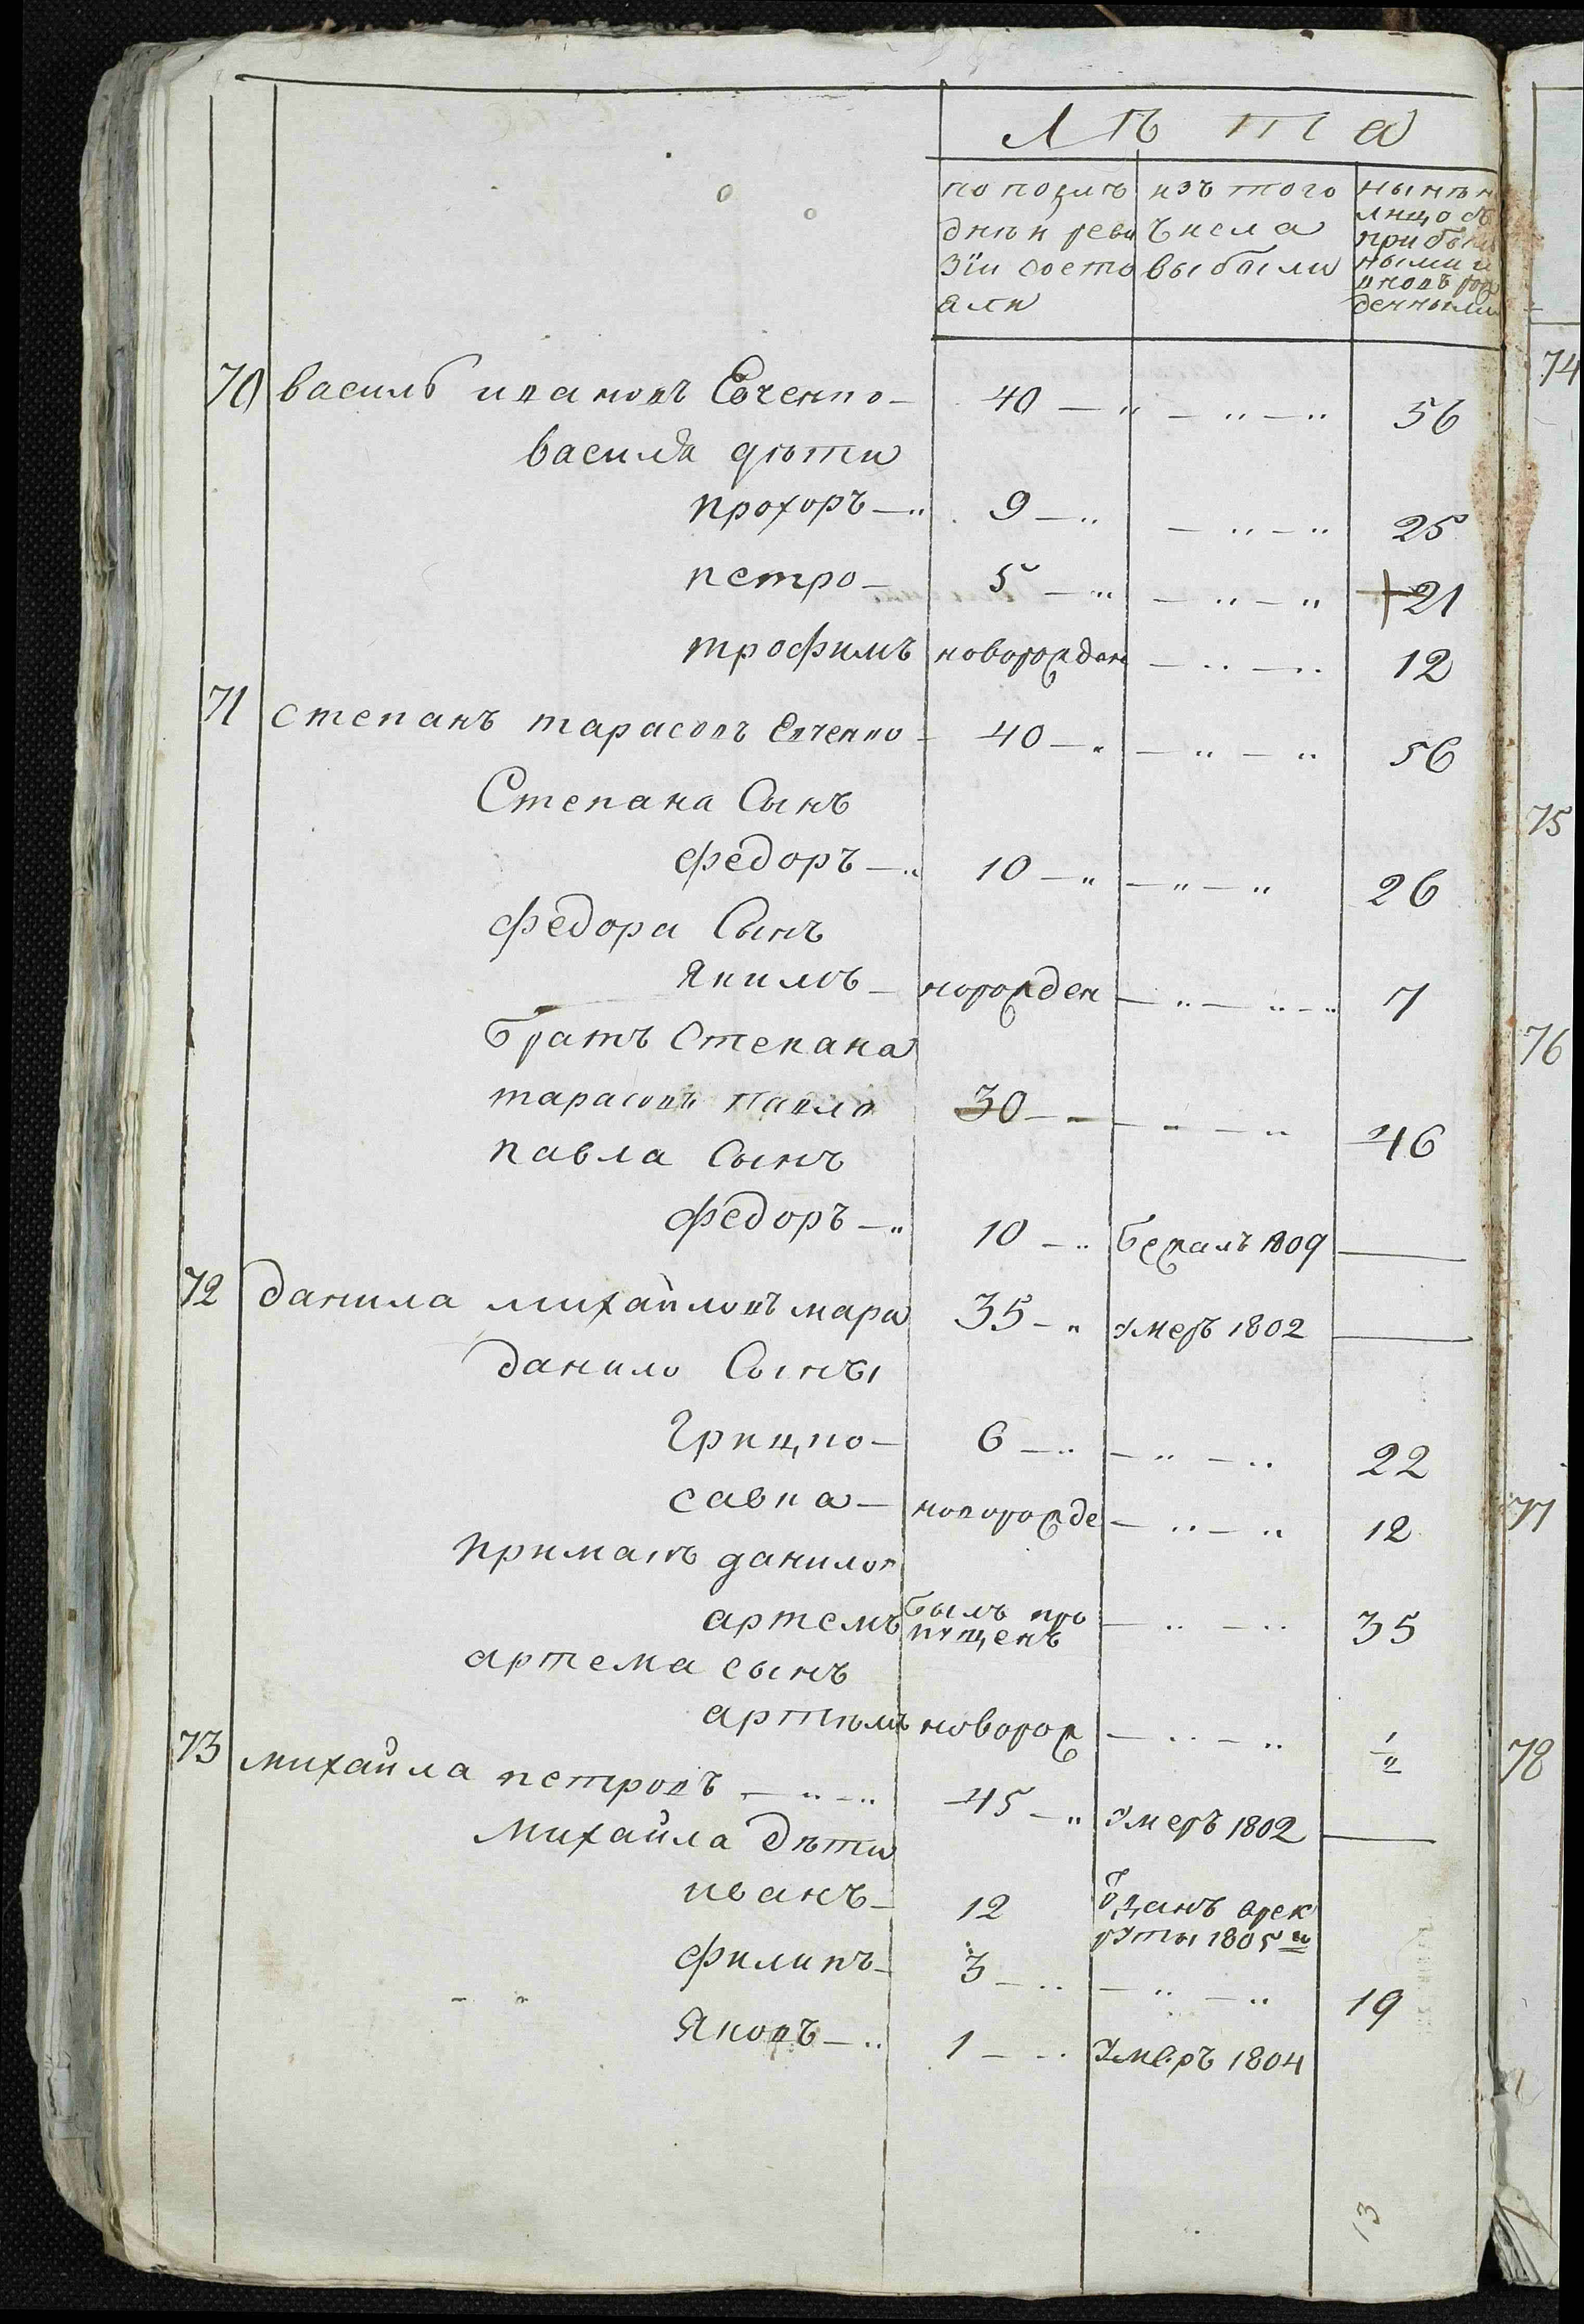 Лѣта
по послѣ изъ того нынѣ н
дней реви числа лицо съ
зіи состо выбыли прибы
яли ными и
вновь рож
денными
70 василь ивановъ Евченко — 40 — " — " — " 56
василя дѣти
прохоръ — " 9 — " — " — " 25
петро — 5 — " — " — " 21
трофимъ новорожден — " — " 12
71 степанъ тарасовъ Евченко — 40 — " — " — " 56
Степана Сынъ
федоръ — " 10 — " — " — " 26
федора Сынъ
Якимъ — норожден — " — " — " 7
братъ Степана
тарасовъ Павло 30 — " — " — " 46
павла Сынъ
федоръ — " 10 — " бежалъ 1809 —
72 данила михайловъ мара 35 — " умеръ 1802 —
данило Сынъı
Грицко — 6 — " — " — " 22
савка — новорожде — " — " 12
примакъ данилов
артемъ былъ про — " — " 35
пущенъ
артема сынъ
артюмъ новорож — " — " ½
73 михайла петровъ — " — " 45 — " умеръ 1802 —
Михайла дѣти
иванъ — 12 Отданъ врек
руты 1805 го
филипъ — 3 — " — " — " 19
Яковъ — " 1 — " Умеръ 1804
13
74
75
76
77
78